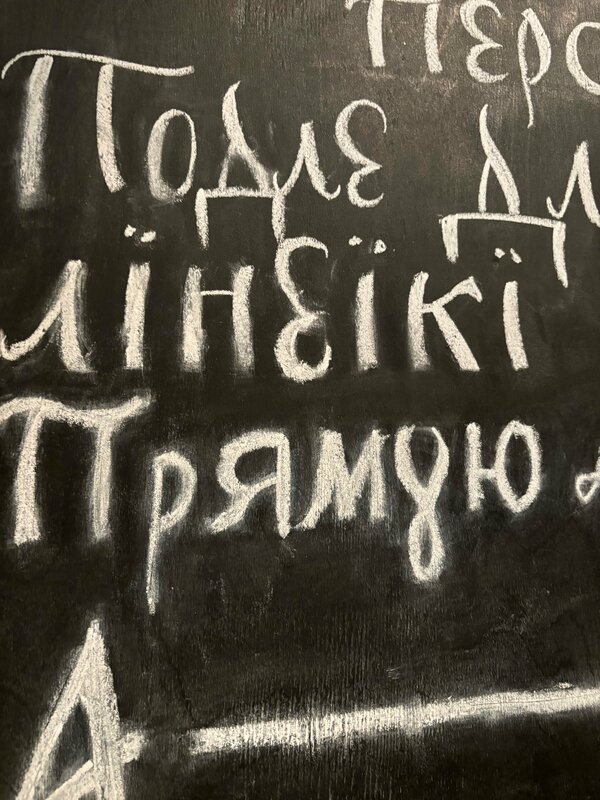 Пер
Подле дл
лїнеїкї
Прямую
А